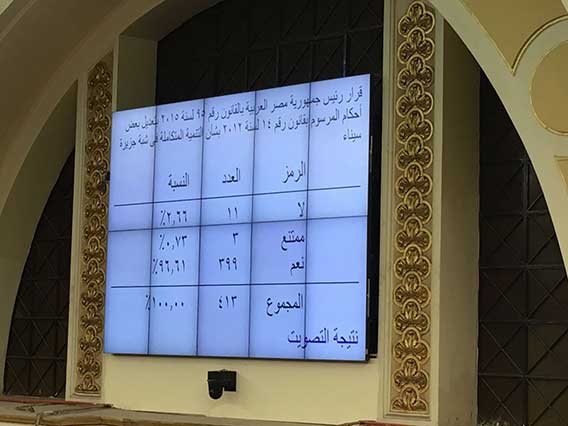 قرار رئيس جمهورية مصر العربية بالقانون رقم ٩٥ لسنة ٢٠١٥ بتعديل بعض
أحكام المرسوم بقانون رقم ١٤ لسنة ٢٠١٢ بشأن التنمية المتكاملة فى شبة جزيرة
سيناء
الرمز العدد النسبة
لا ١١ ٢,٦٦٪
ممتنع ٣ ٠,٧٣٪
نعم ٣٩٩ ٩٦,٦١٪
المجموع ٤١٣ ١٠٠,٠٠٪
نتيجة التصويت